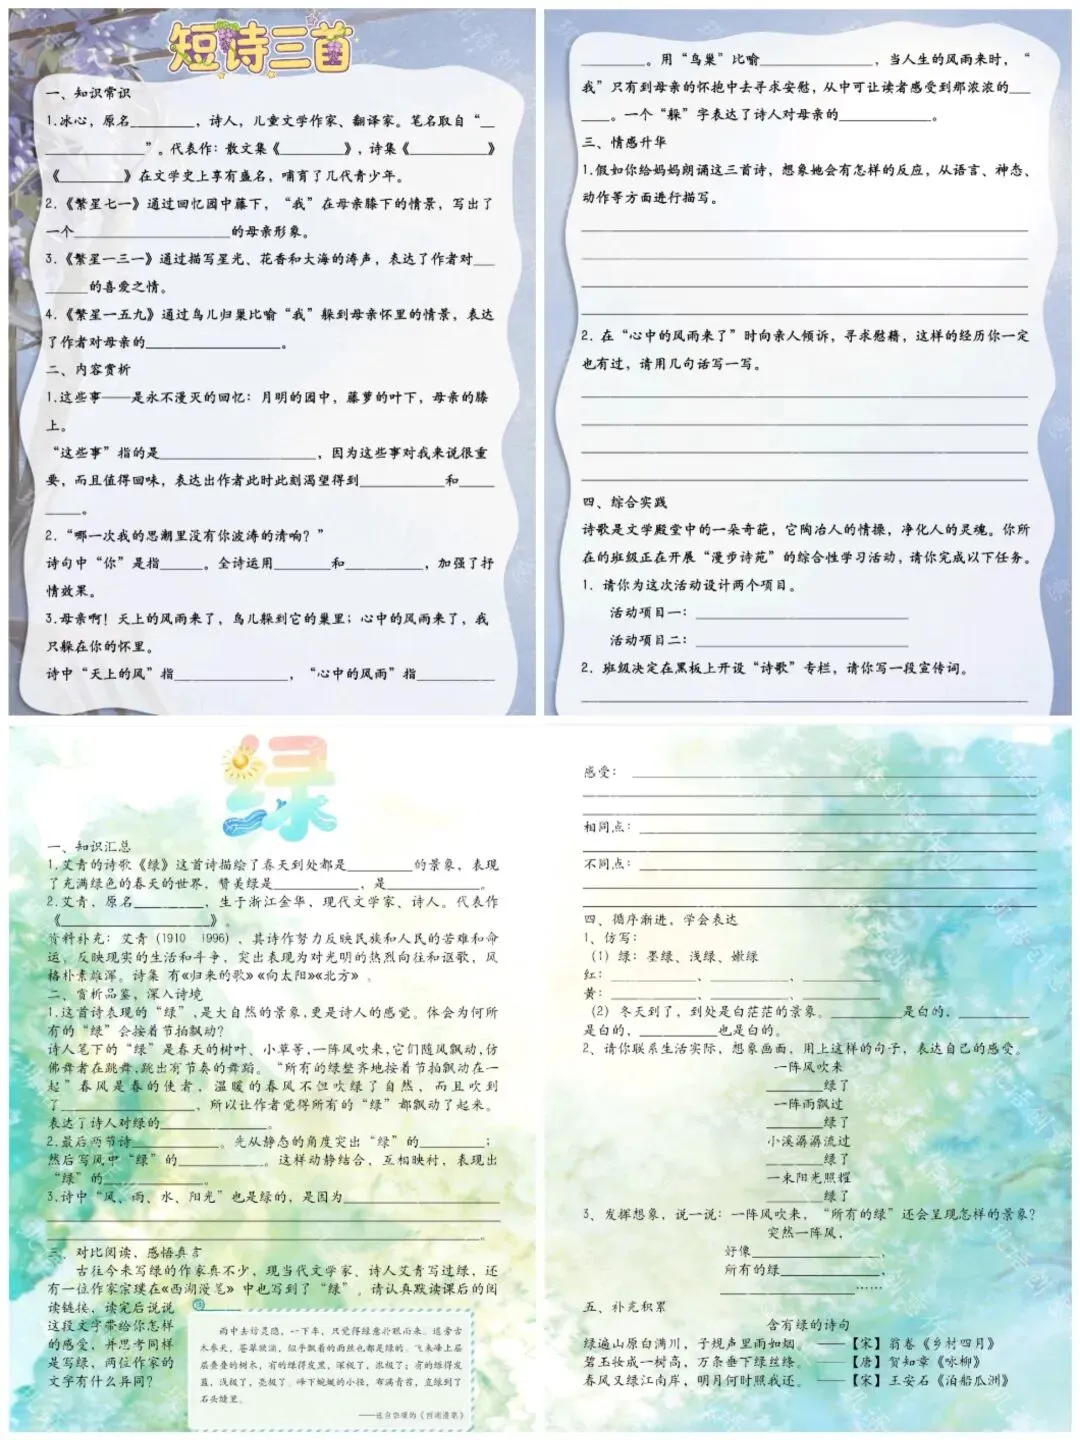 短诗三首
一、知识常识
1.冰心，原名________，诗人，儿童文学作家、翻译家。笔名取自“__
______________”。代表作：散文集《________》，诗集《__________》
《________》在文学史上享有盛名，哺育了几代青少年。
2.《繁星七一》通过回忆园中藤下，“我”在母亲膝下的情景，写出了
一个____________________的母亲形象。
3.《繁星一三一》通过描写星光、花香和大海的涛声，表达了作者对___
______的喜爱之情。
4.《繁星一五九》通过鸟儿归巢比喻“我”躲到母亲怀里的情景，表达
了作者对母亲的__________________。
二、内容赏析
1.这些事——是永不漫灭的回忆：月明的园中，藤萝的叶下，母亲的膝
上。
“这些事”指的是____________________，因为这些事对我来说很重
要，而且值得回味，表达出作者此时此刻渴望得到___________和_____
_____。
2.“哪一次我的思潮里没有你波涛的清响？”
诗句中“你”是指______。全诗运用________和__________，加强了抒
情效果。
3.母亲啊！天上的风雨来了，鸟儿躲到它的巢里；心中的风雨来了，我
只躲在你的怀里。
诗中“天上的风”指_______________，“心中的风雨”指__________
________。用“鸟巢”比喻_______________，当人生的风雨来时，“
我”只有到母亲的怀抱中去寻求安慰，从中可让读者感受到那浓浓的___
____。一个“躲”字表达了诗人对母亲的____________。
三、情感升华
1.假如你给妈妈朗诵这三首诗，想象她会有怎样的反应，从语言、神态、
动作等方面进行描写。
2．在“心中的风雨来了”时向亲人倾诉，寻求慰藉，这样的经历你一定
也有过，请用几句话写一写。
四、综合实践
诗歌是文学殿堂中的一朵奇葩，它陶冶人的情操，净化人的灵魂。你所
在的班级正在开展“漫步诗苑”的综合性学习活动，请你完成以下任务。
1．请你为这次活动设计两个项目。
活动项目一：____________________________
活动项目二：____________________________
2．班级决定在黑板上开设“诗歌”专栏，请你写一段宣传词。
绿
一、知识汇总
1.艾青的诗歌《绿》这首诗描绘了春天到处都是________的景象，表现
了充满绿色的春天的世界，赞美绿是__________，是___________。
2.艾青，原名________，生于浙江金华，现代文学家、诗人。代表作
《_________________》。
资料补充：艾青（1910　1996），其诗作努力反映民族和人民的苦难和命
运，反映现实的生活和斗争，突出表现为对光明的热烈向往和讴歌，风
格朴素雄浑。诗集 有《归来的歌》《向太阳》《北方》。
二、赏析品鉴，深入诗境
1.这首诗表现的“绿”，是大自然的景象，更是诗人的感觉。体会为何所
有的“绿”会按着节拍飘动？
诗人笔下的“绿”是春天的树叶、小草等，一阵风吹来，它们随风飘动，仿
佛舞者在跳舞，跳出有节奏的舞蹈。“所有的绿整齐地按着节拍飘动在一
起”春风是春的使者，温暖的春风不但吹绿了自然，而且吹到
了________________，所以让作者觉得所有的“绿”都飘动了起来。
表达了诗人对绿的_____________。
2.最后两节诗__________。先从静态的角度突出“绿”的________；
然后写风中“绿”的__________。这样动静结合，互相映衬，表现出
“绿”的____________。
3.诗中“风、雨、水、阳光”也是绿的，是因为__________________
三、对比阅读，感悟真言
古往今来写绿的作家真不少，现当代文学家、诗人艾青写过绿，还
有一位作家宗璞在《西湖漫笔》中也写到了“绿”。请认真默读课后的阅
读链接，读完后说说
这段文字带给你怎样
的感受，并思考同样
是写绿，两位作家的
文字有什么异同？
雨中去访灵隐，一下车，只觉得绿意扑眼而来。道旁古
木参天，苍翠欲滴，似乎飘着的雨丝也都是绿的。飞来峰上层
层叠叠的树木，有的绿得发黑，深极了，浓极了；有的绿得发
蓝，浅极了，亮极了。峰下蜿蜒的小径，布满青苔，直绿到了
石头缝里。
——选自宗璞的《西湖漫笔》
感受：
相同点：
不同点：
四、循序渐进，学会表达
1、仿写：
（1）绿：墨绿、浅绿、嫩绿
红：__________、_________、_________
黄：__________、_________、_________
（2）冬天到了，到处是白茫茫的景象。________是白的，________
是白的，________也是白的。
2、请你联系生活实际，想象画面，用上这样的句子，表达自己的感受。
一阵风吹来
______绿了
一阵雨飘过
______绿了
小溪潺潺流过
______绿了
一束阳光照耀
______绿了
3、发挥想象，说一说：一阵风吹来，“所有的绿”还会呈现怎样的景象？
突然一阵风，
好像_______________，
所有的绿____________，
________________……
五、补充积累
含有绿的诗句
绿遍山原白满川，子规声里雨如烟。——【宋】翁卷《乡村四月》
碧玉妆成一树高，万条垂下绿丝绦。——【唐】贺知章《咏柳》
春风又绿江南岸，明月何时照我还。——【宋】王安石《泊船瓜洲》